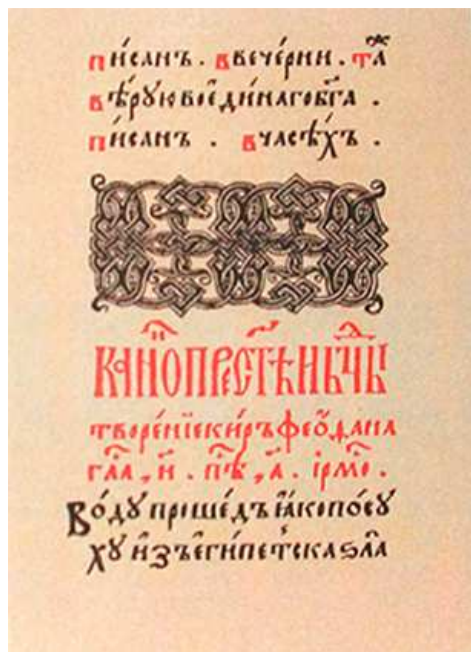 пи́санъ . ввече́рни . тл҃а
вѣ́рꙋю воеди́наго бг҃а .
пи́санъ . вчасѣ́хъ .
канѡ́ прест҃ѣи бц҃ы
творе́нїе ки́ръ феѡ́дана
гла́ , и҃ . пѣ́ , а҃ . ірмо́ .
Во́дꙋ проше́дъ ꙗ҆́ко посꙋ́
хꙋ и҆зъ е҆ги́петска ѕла̀